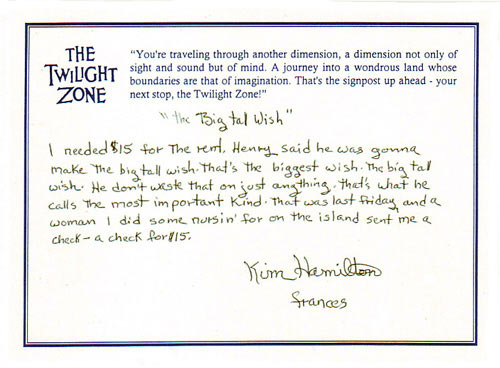 THE
TWILIGHT
ZONE
"You're traveling through another dimension, a dimension not only of
sight and sound but of mind. A journey into a wondrous land whose
boundaries are that of imagination. That's the signpost up ahead - your
next stop, the Twilight Zone!"
"the Big tal Wish"
I needed $15 for the rent. Henry said he was gonna
make the big tall wish. That's the biggest wish. The big tal
wish. He don't waste that on just anything. that's what he
calls the most important kind. That was last friday, and a
woman I did some nursin' for on the island sent me a
check - a check for $15.
Kim Hamilton
frances